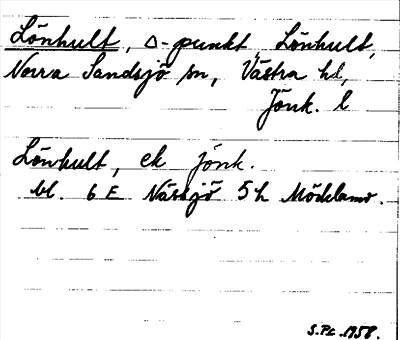 Lönhult, △-punkt, Lönhult,
Norra Sandsjö sn, Västra hd,
Jönk. l
Lönhult, ek Jönk.
bl. 6 E Nässjö 5 h Mödelamo.
S.Pc. 1958.